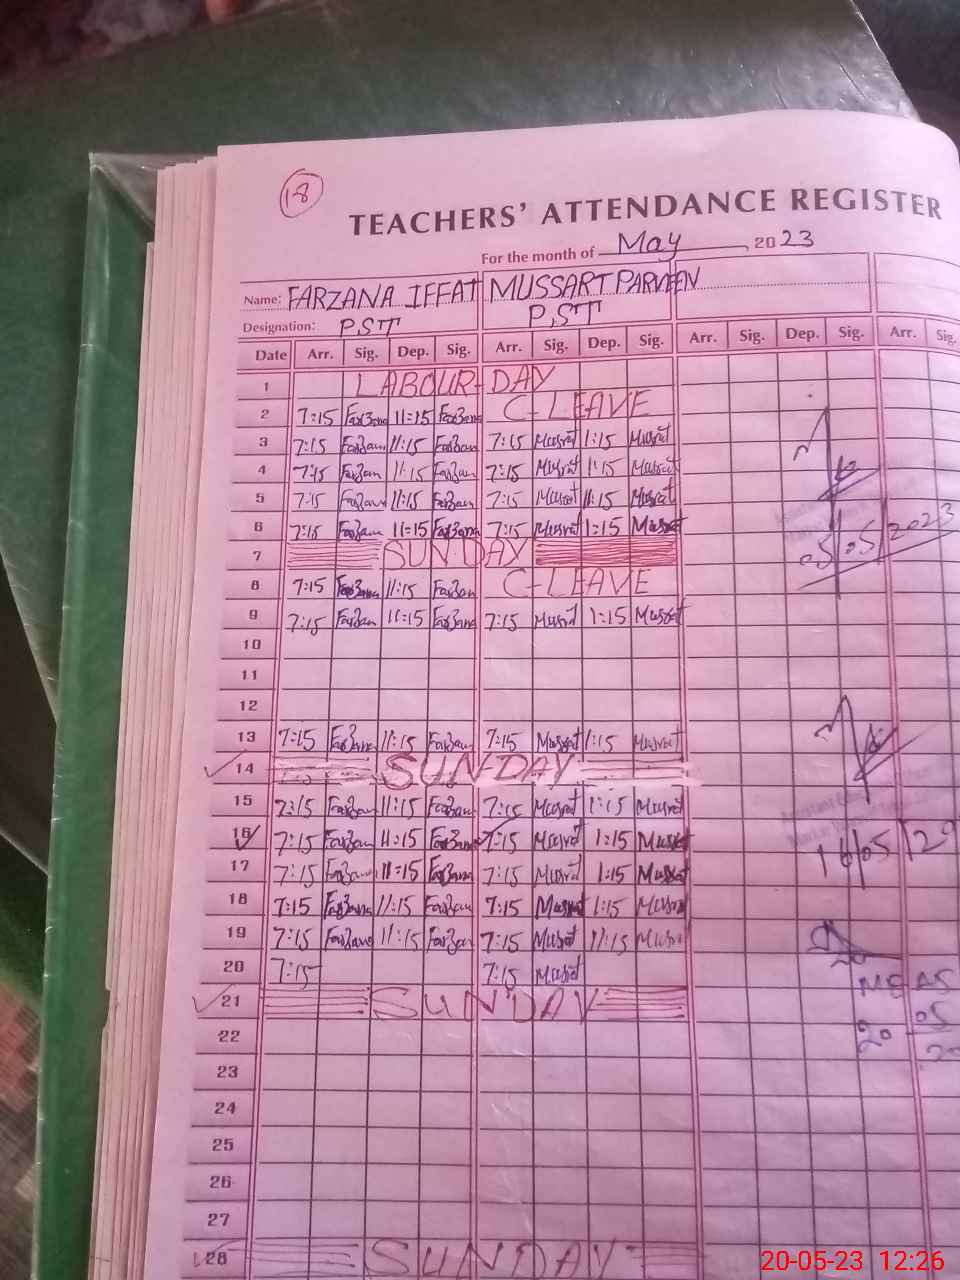 18
TEACHERS' ATTENDANCE REGISTER
For the month of May, 2023
Name: FARZANA IFFAT MUSSART PARVEEN
Designation: P.S.T P.S.T
Date Arr. Sig. Dep. Sig. Arr. Sig. Dep. Sig. Arr. Sig. Dep. Sig. Arr. Sig.
1 LABOUR-DAY
2 7:15 Farzana 11:15 Farzana C-LEAVE
3 7:15 Farzan 11:15 Farzan 7:15 Musrat 1:15 Musrat
4 7:15 Farzan 11:15 Farzan 7:15 Musrat 1:15 Musrat
5 7:15 Farzan 11:15 Farzan 7:15 Musrat 11:15 Musrat
6 7:15 Farzan 11:15 Farzana 7:15 Musrat 1:15 Musrat
05/05/2023
7 SUNDAY
8 7:15 Farzana 11:15 Farzan C-LEAVE
9 7:15 Farzan 11:15 Farzana 7:15 Musrat 1:15 Mussrat
10
11
12
13 7:15 Farzana 11:15 Farzan 7:15 Mussrat 1:15 Musrrat
14 SUNDAY
15 7:15 Farzan 11:15 Farzan 7:15 Musrat 1:15 Musrat
16 7:15 Farzan 11:15 Farzana 7:15 Musrat 1:15 Musrat
17 7:15 Farzana 11:15 Farzana 7:15 Musrat 1:15 Musrat
18 7:15 Farzana 11:15 Farzan 7:15 Musrat 1:15 Musrat
19 7:15 Farzana 11:15 Farzan 7:15 Musrat 11:15 Musrat
20 7:15 7:15 Musrat
21 SUNDAY
22
23
24
25
26
27
28 SUNDAY
20-05-23 12:26